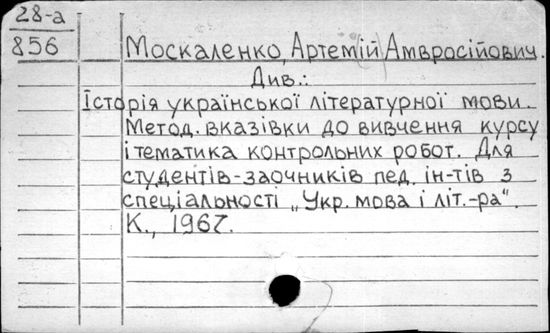 28-а
856 Москаленко, Артемій Амвросійович.
Див.:
Історія української літературної мови.
Метод. вказівки до вивчення курсу
і тематика контрольних робот. Для
студентів-заочників пед. ін-тів з
спеціальності „Укр. мова і літ.-ра".
К., 1967.